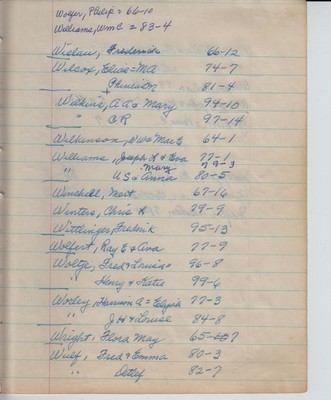 Wolfer, Philip = 66-10
Williams, Wm C = 83-4
Wislau, Frederick 66-12
Wilcox, Elvie = MA 74-7
" Phineas M 81-4
Wilkins, A A & Mary 94-10
" C R 97-14
Wilkinson, 64-1
Williams, Joseph H & Eva 77-1
" Mary 79-3
U S & Anna 80-5
Winchell, Mort 67-16
Winters, Chris K 79-9
Wittlinger, Fredrik 95-13
Wolfert, Ray E & Ava 77-9
Woltz, Fred & Louise 96-8
" Henry & Katie 99-6
Worley, Harrison A = 77-3
" J H & Louise 84-8
Wright, Flora May 65-7
Wulf, Fred & Emma 80-3
" Detlef 82-7